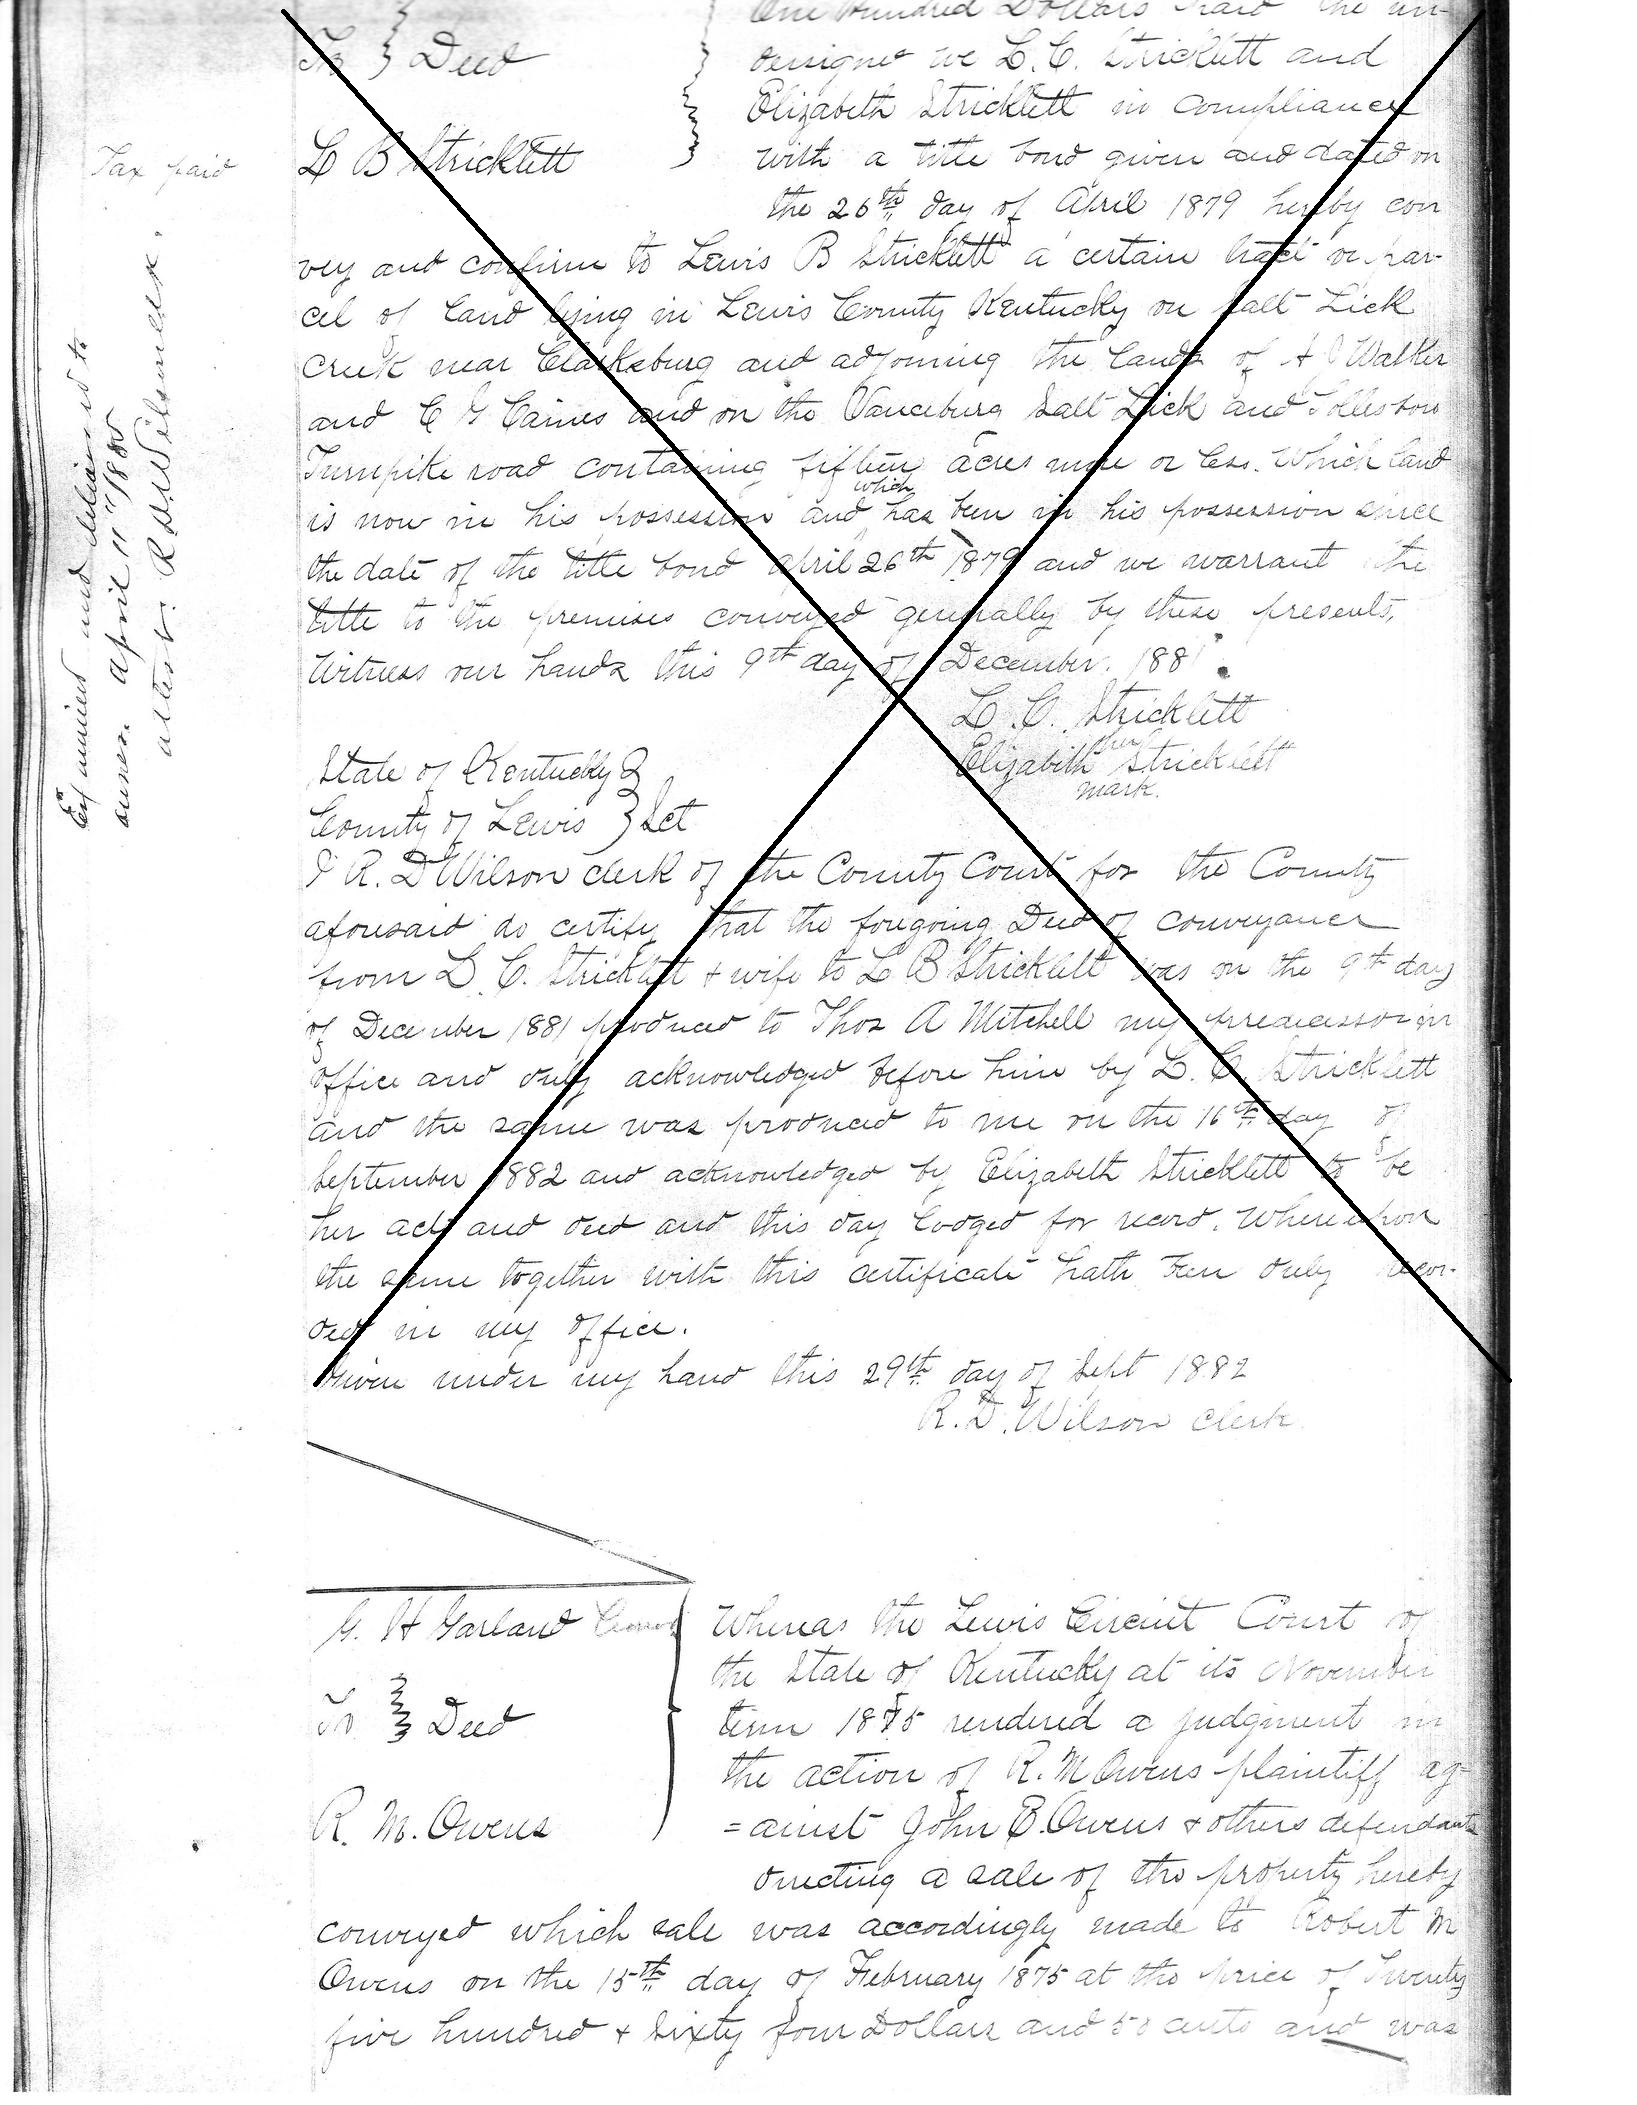 One Hundred Dollars Paid the un-
To } Deed
dersigned we L. C. Stricklett and
Elizabeth Stricklett in compliance
L B Stricklett
with a title bond given and dated on
Tax paid
the 26th day of April 1879 hereby con
vey and confirm to Lewis B Stricklett a certain tract or par-
cel of land lying in Lewis County Kentucky on Salt Lick
creek near Clarksburg and adjoining the lands of A Walker
and C G Caines and on the Vanceburg Salt Lick and Tollesboro
Turnpike road containing fifteen acres more or less. Which land
is now in his possession and which has been in his possession since
the date of the title bond April 26th 1879 and we warrant the
title to the premises conveyed generally by these presents,
Witness our hands this 9th day of December. 1881.
L. C. Stricklett
Elizabeth her Stricklett
mark.
State of Kentucky }
County of Lewis } Sct
I R. D Wilson clerk of the County Court for the County
aforesaid do certify that the foregoing Deed of conveyance
from L. C. Stricklett & wife to L B Stricklett was on the 9th day
of December 1881 produced to Thos A Mitchell my predecessor in
office and duly acknowledged before him by L. C. Stricklett
and the same was produced to me on the 16th day of
September 1882 and acknowledged by Elizabeth Stricklett to be
her act and deed and this day lodged for record. Whereupon
the same together with this certificate hath been duly recor-
ded in my office.
Given under my hand this 29th day of Sept 1882
R. D. Wilson clerk
Examined and delivered to
owner. April 11"
attest: R. D. Wilson
G. H Garland
Whereas the Lewis Circuit Court of
the State of Kentucky at its November
To } Deed
term 1875 rendered a judgment in
the action of R. M Owens plaintiff ag-
R. M. Owens
=ainst John E. Owens & others defendants
directing a sale of the property hereby
conveyed which sale was accordingly made to Robert M
Owens on the 15th day of February 1875 at the price of Twenty
five hundred & Sixty four Dollars and 50 cents and was